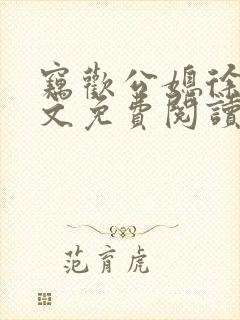 竊歡公媳徐
文免費閱讀
范育虎